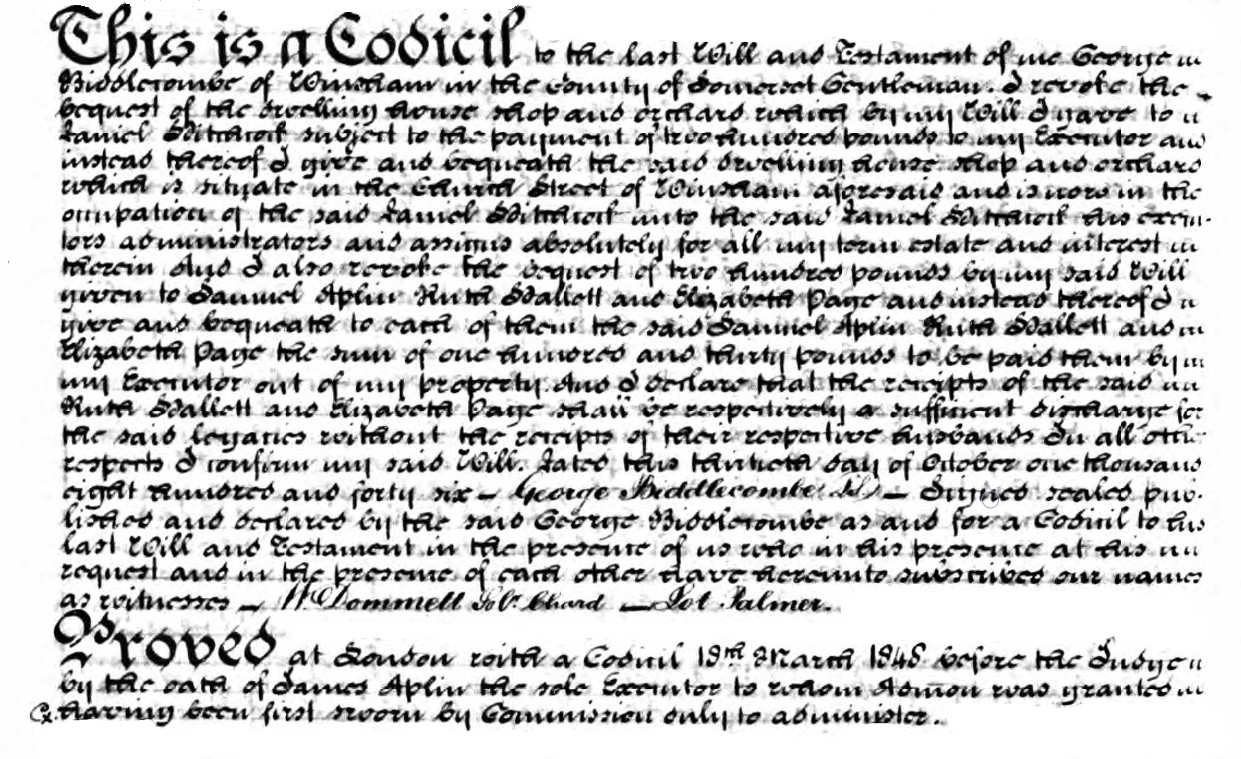 This is a Codicil to the last Will and Testament of me George
Biddlecombe of Winsham in the County of Somerset Gentleman. I revoke the
bequest of the dwelling house shop and orchard which by my Will I gave to
Daniel Hitchcock subject to the payment of two hundred pounds to my Executor and
instead thereof I give and bequeath the said dwelling house shop and orchard
which is situate in the Church Street of Winsham aforesaid and is now in the
occupation of the said Daniel Hitchcock unto the said Daniel Hitchcock his execu-
tors administrators and assigns absolutely for all my term estate and interest
therein And I also revoke the bequest of two hundred pounds by my said Will
given to Samuel Aplin Ruth Hallett and Elizabeth Page and instead thereof I
give and bequeath to each of them the said Samuel Aplin Ruth Hallett and
Elizabeth Page the sum of one hundred and thirty pounds to be paid them by
my Executor out of my property And I declare that the receipts of the said
Ruth Hallett and Elizabeth Page shall be respectively a sufficient discharge for
the said legacies without the receipts of their respective husbands In all other
respects I confirm my said Will. Dated this thirtieth day of October one thousand
eight hundred and forty six – George Biddlecombe – Signed sealed pub-
lished and declared by the said George Biddlecombe as and for a Codicil to his
last Will and Testament in the presence of us who in his presence at his
request and in the presence of each other have hereunto subscribed our names
as witnesses – Wm Dommett Solr Chard – Jot Palmer.
Proved at London with a Codicil 18th March 1848 before the Judge
by the oath of James Aplin the sole Executor to whom Admon was granted
having been first sworn by Commission duly to administer.